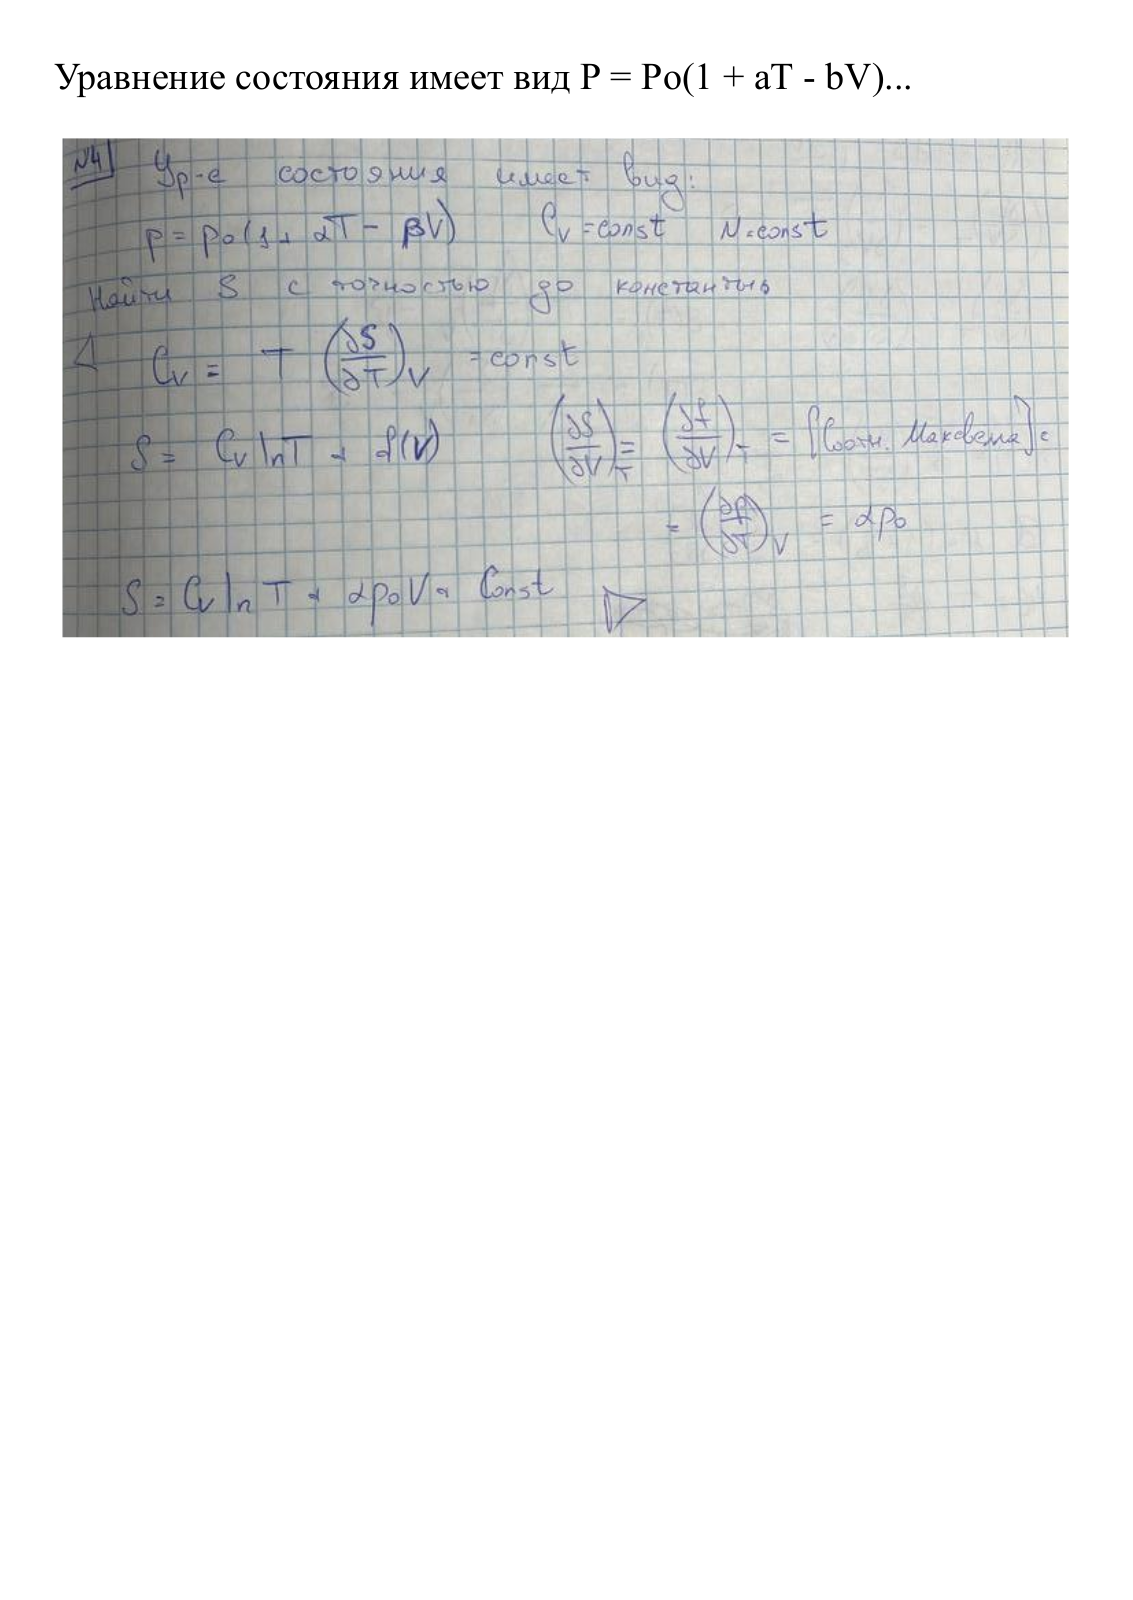 Уравнение состояния имеет вид P = Po(1 + aT - bV)...
№4 Ур-е состояния имеет вид:
p = p₀(1 + αT - βV) Cᵥ = const N = const
Найти S с точностью до константы
◁ Cᵥ = T (∂S/∂T)ᵥ = const
S = Cᵥ ln T + f(V) (∂S/∂V)_T = (∂f/∂V)_T = [Соотн. Максвелла] =
= (∂p/∂T)ᵥ = αp₀
S = Cᵥ ln T + αp₀V + Const ▷